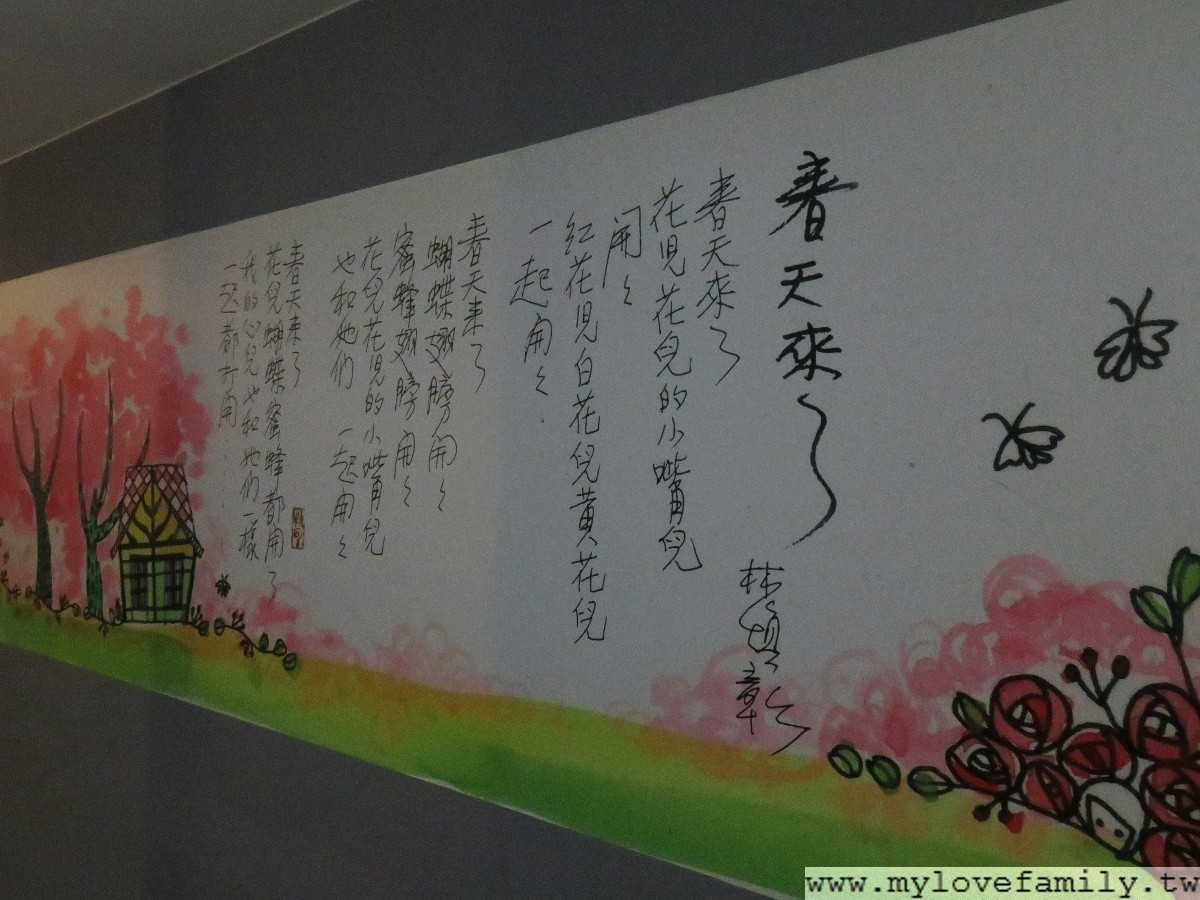 春天來了
林煥彰
春天來了
花児花兒的小嘴兒
開々
紅花児白花兒黃花兒
一起開々.
春天來了
蝴蝶翅膀開々
蜜蜂翅膀開々
花兒花児的小嘴兒
也和她们 一起開々
春天來了
花兒蝴蝶蜜蜂都開了
我的心兒也和她们一樣
一起都打開......
www.mylovefamily.tw